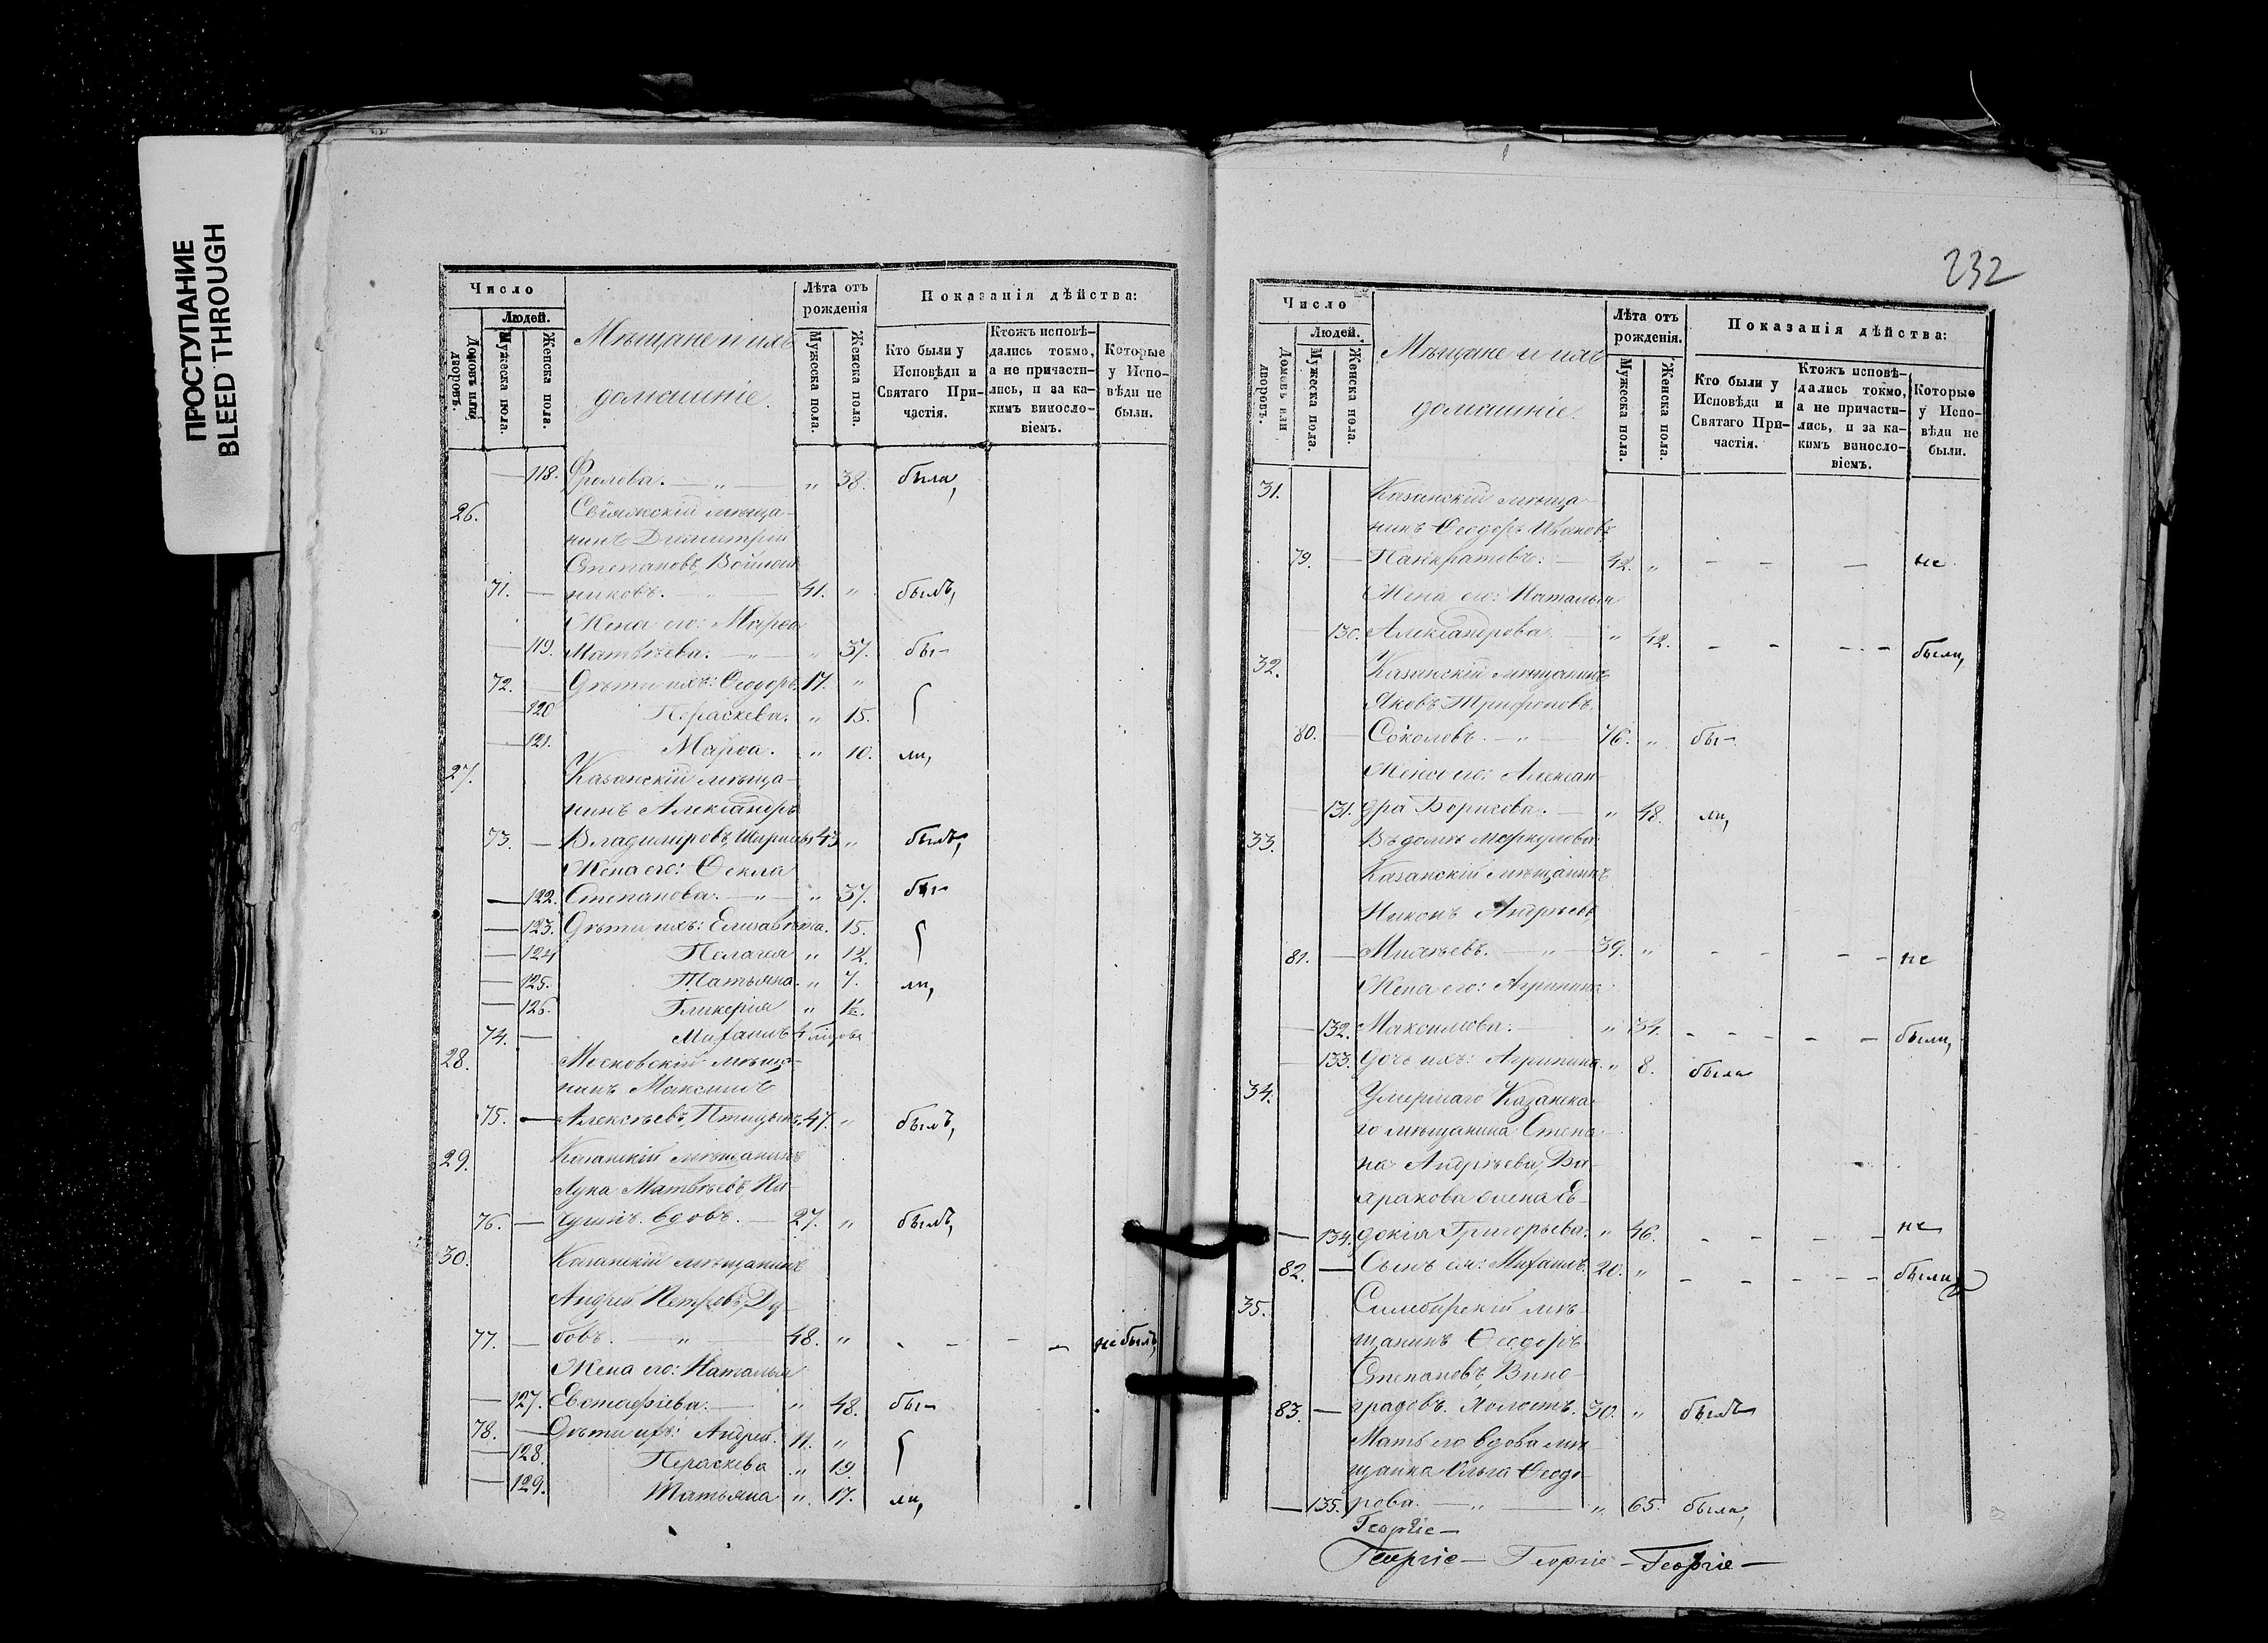 ПРОСТУПАНИЕ
BLEED THROUGH
Число
Людей.
Домовъ или дворовъ.
Мужеска пола.
Женска пола.
Мѣщане и ихъ
домашніе.
Лѣта отъ
рожденія
Мужеска пола.
Женска пола.
Показанія дѣйства:
Кто были у
Исповѣди и
Святаго При-
частія.
Ктожъ исповѣ-
дались токмо,
а не причасти-
лись, и за ка-
кимъ винносло-
віемъ.
Которые
у Испо-
вѣди не
были.
118. Фролова. — „ — „ 38. была,
26. Свіяжскій мѣща-
нинъ Димитрій
Степановъ,
71. — никовъ. — „ — 41. „ былъ,
Жена его: Марѳа
— 119. Матвѣева. — „ — „ 37. бы-
72. — Дѣти ихъ: Ѳеодоръ. 17. „
— 120 Параскева. „ 15.
— 121. Марѳа. „ 10. ли,
27. Казанскій мѣща-
нинъ Александръ
73. — Владиміровъ, 43 „ былъ,
Жена его: Ѳекла
— 122. Степанова. — „ — „ 37. бы-
— 123. Дѣти ихъ: Елисавета. 15.
— 124 Пелагея „ 12.
— 125. Татьяна. „ 7. ли,
— 126. Гликерія „
74. — Михаилъ
28. Московскій мѣща-
нинъ Максимъ
75. — Алексѣевъ, Птицынъ. 47. „ былъ,
29. Казанскій мѣщанинъ
Лука Матвѣевъ
76. — вдовъ. — 27. „ былъ,
30. Казанскій мѣщанинъ
Андрей Петровъ, Ду-
77. — бовъ. — „ — 48. „ - - - - не былъ,
Жена его: Наталья
— 127. Евстафіева. — „ 48. бы-
78. — Дѣти ихъ: Андрей. 11. „
— 128. Параскева „ 19.
— 129. Татьяна „ 17. ли,
232
Число
Людей.
Домовъ или дворовъ.
Мужеска пола.
Женска пола.
Мѣщане и ихъ
домашніе.
Лѣта отъ
рожденія.
Мужеска пола.
Женска пола.
Показанія дѣйства:
Кто были у
Исповѣди и
Святаго При-
частія.
Ктожъ исповѣ-
дались токмо,
а не причасти-
лись, и за ка-
кимъ винносло-
віемъ.
Которые
у Испо-
вѣди не
были.
31. Казанскій мѣща-
нинъ Ѳеодоръ Ивановъ
79. — Панкратовъ. — 42. „ - - — не
Жена его: Наталья
— 130. Александрова. — „ 42. - - - - были,
32. Казанскій мѣщанинъ
Яковъ Трифоновъ
80. — Соколовъ. — „ — 76. „ бы-
Жена его: Алексан-
— 131. дра Борисова. — „ 48. ли,
33. Въ домѣ Меркулова
Казанскій мѣщанинъ
Никонъ Андреевъ
81. — Михѣевъ. — „ — 39. „ - - - - не
Жена его: Агрипина
— 132. Максимова. — „ 34. - - - - - были,
— 133. Дочь ихъ: Агрипина. „ 8. была
34. Умершаго Казанска-
го мѣщанина Степа-
на Андреева,
жена Ев-
— 134. докія Григорьева. „ 46. - - - - не
82. — Сынъ ея: Михаилъ. 20. „ - - - - - были,
35. Симбирскій мѣ-
щанинъ Ѳеодоръ
Степановъ, Вино-
83. — градовъ. Холостъ. 30. „ былъ
Мать его вдова мѣ-
щанка Ольга Ѳеодо-
— 135. рова. — „ — „ 65. была,
Георгіе—
Георгіе— Георгіе— Георгіе—